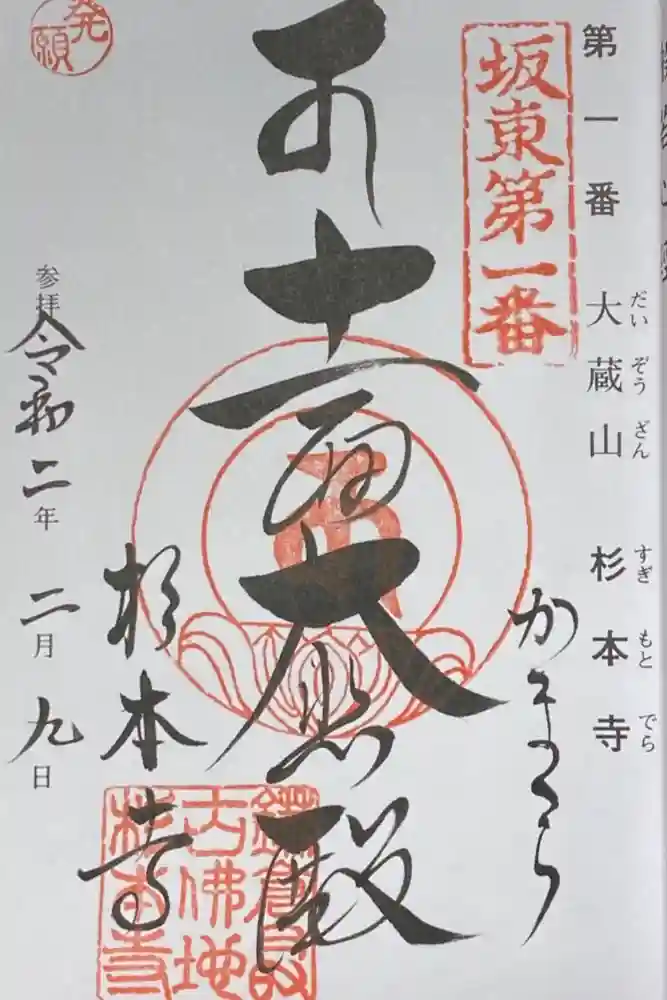 第一番 大蔵山 杉本寺
だいぞうざん すぎもとでら
坂東第一番
かまくら
十一面大悲殿
杉本寺
鎌倉最
古佛地
杉本寺
発願
参拝 令和二年 二月九日